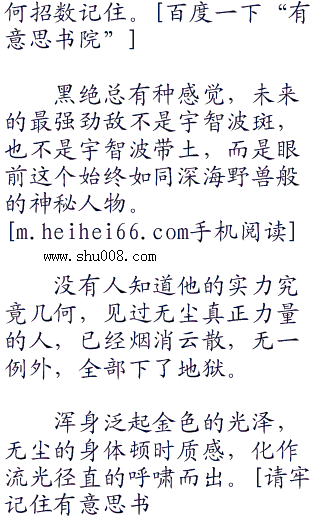 何招数记住。[百度一下“有
意思书院”]
黑绝总有种感觉，未来
的最强劲敌不是宇智波斑，
也不是宇智波带土，而是眼
前这个始终如同深海野兽般
的神秘人物。
[m.heihei66.com手机阅读]
www.shu008.com
没有人知道他的实力究
竟几何，见过无尘真正力量
的人，已经烟消云散，无一
例外，全部下了地狱。
浑身泛起金色的光泽，
无尘的身体顿时质感，化作
流光径直的呼啸而出。[请牢
记住有意思书